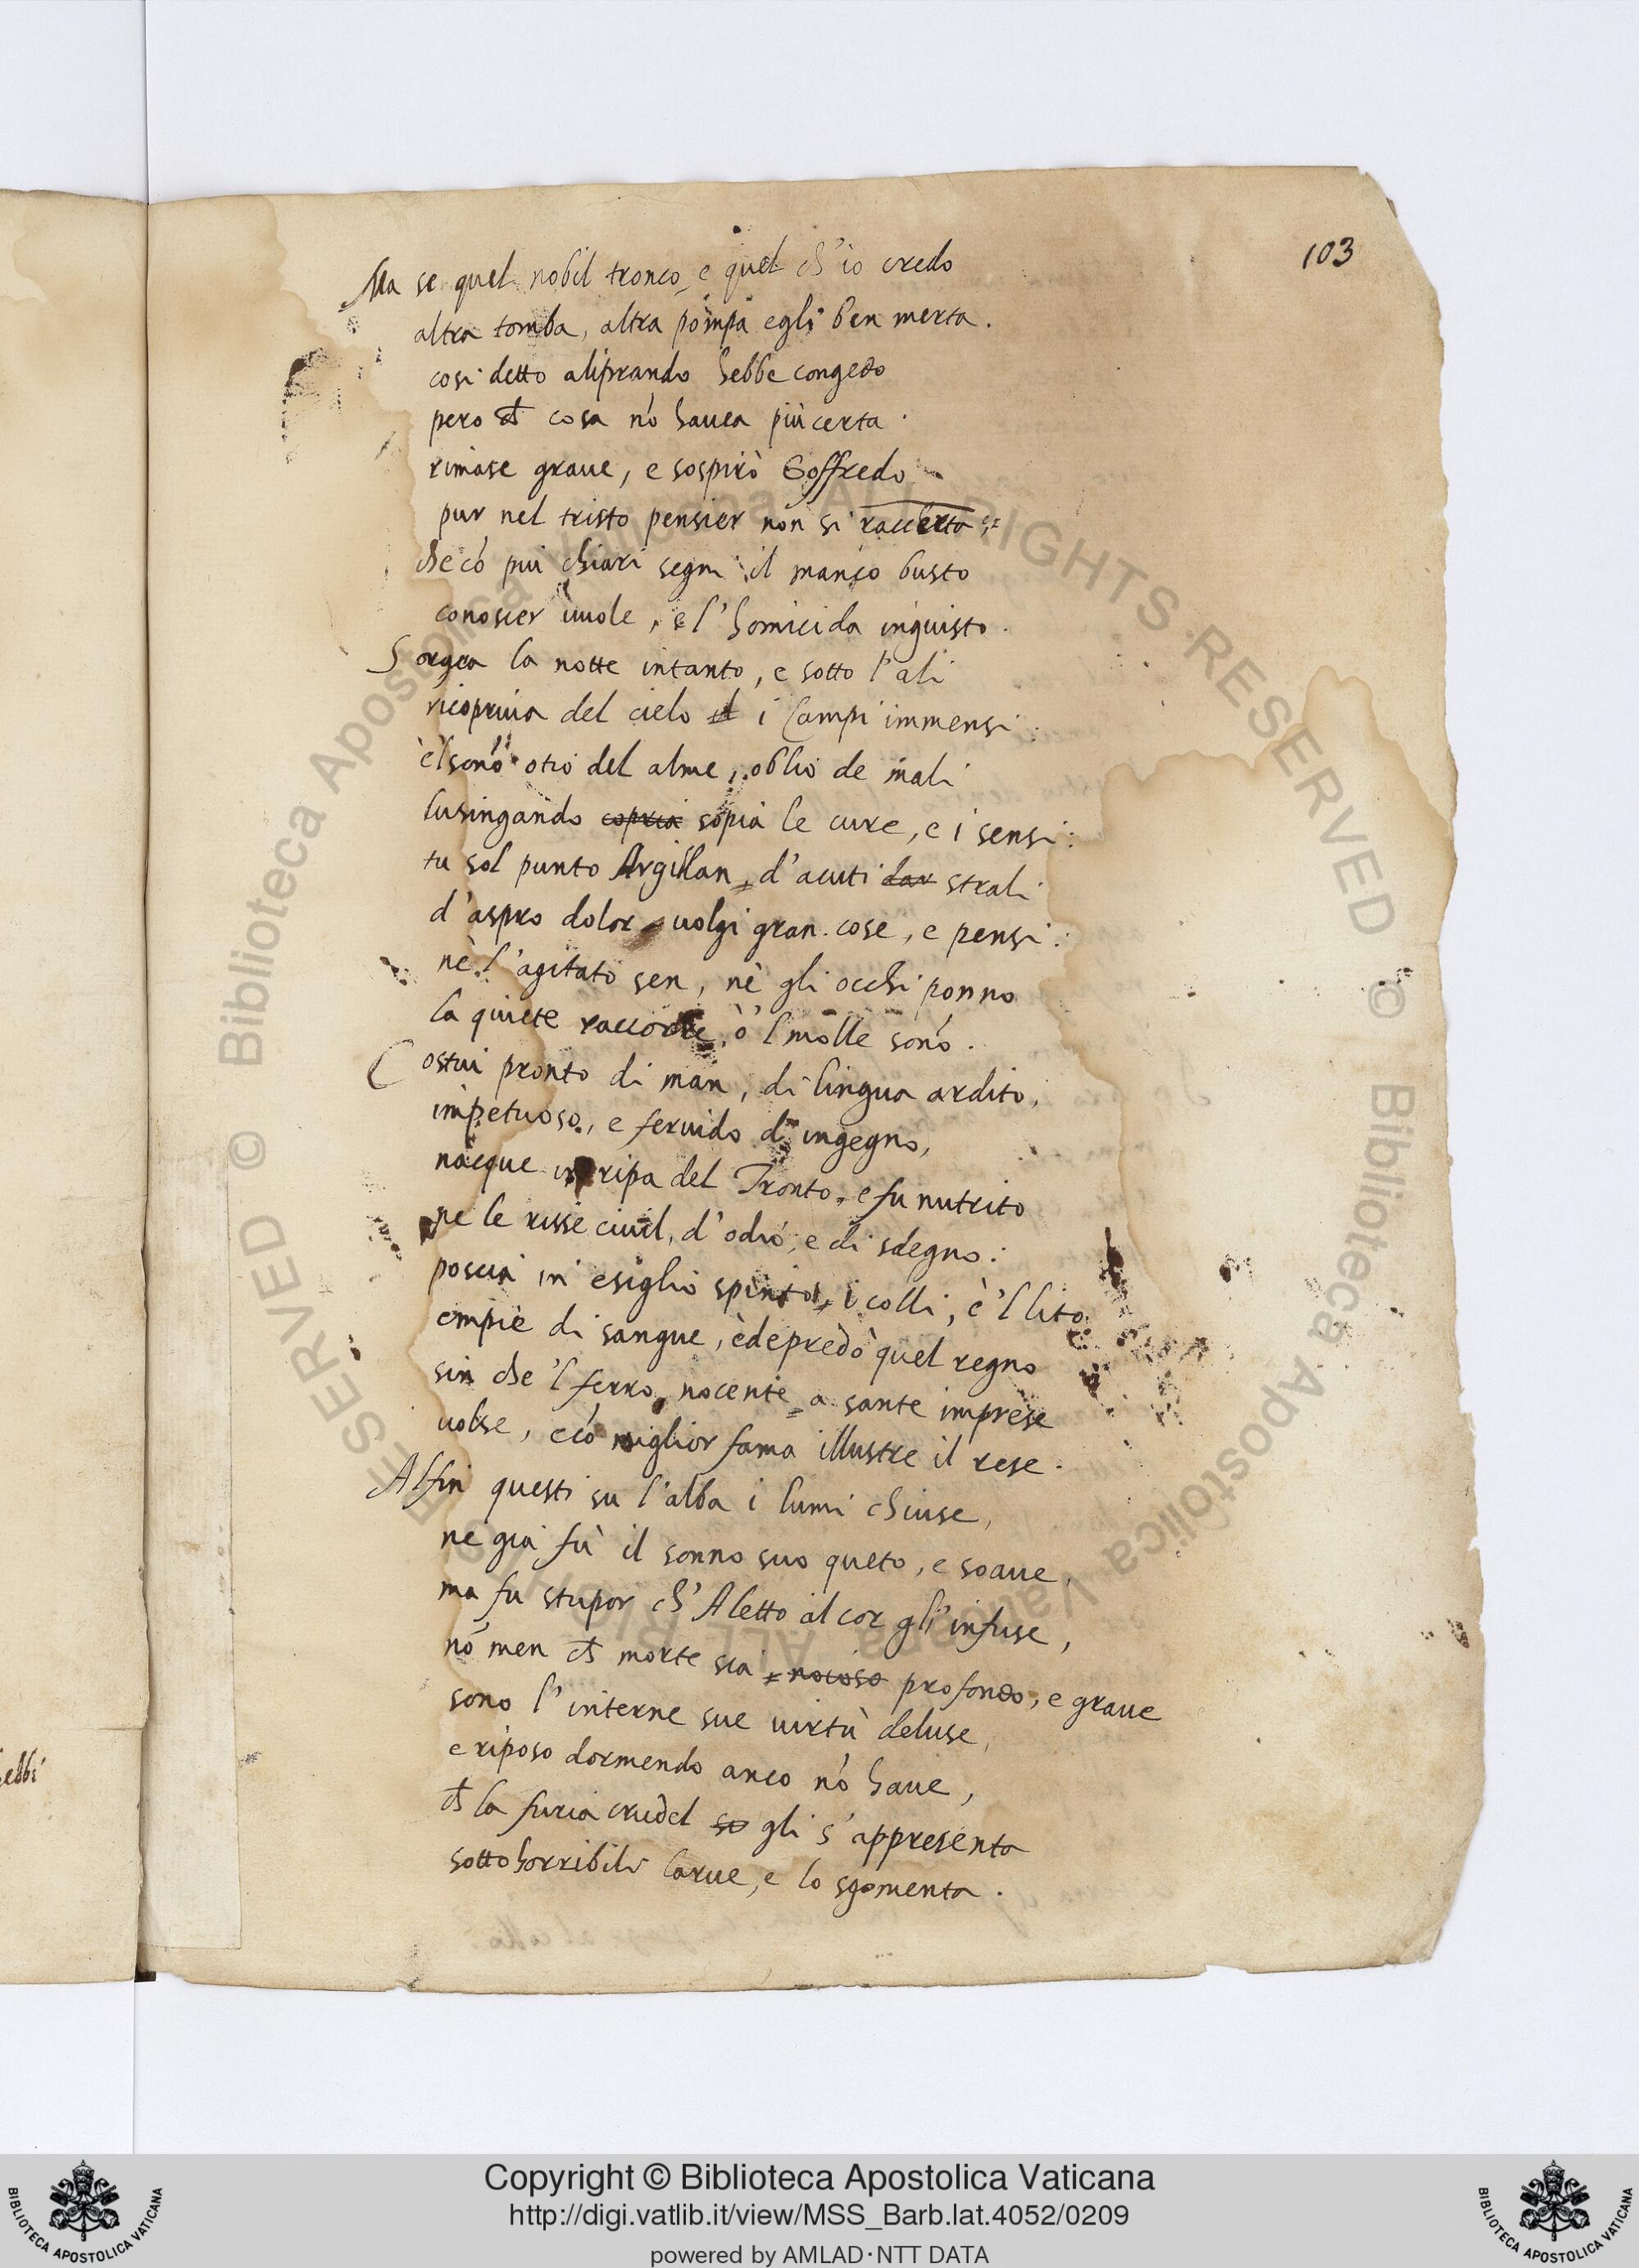 103
Ma se quel nobil tronco, e quel ch'io credo
altra tomba, altra pompa egli ben merta.
cosi detto aliprando hebbe congedo
pero ch cosa nó hauea più certa.
rimase graue, e sospirò Goffredo
pur nel tristo pensier non si raccerta;
che có piu chiari segni il manco busto
conoscer vuole, e l'homicida ingiusto.
Sorgea la notte intanto, e sotto l'ali
ricopriua del cielo i Campi immensi:
è'l sonó otio del alme, oblio de mali
lusingando copria sopia le cure, e i sensi:
tu sol punto Argillan, d'acuti strali
d'aspro dolor, uolgi gran cose, e pensi:
nè l'agitato sen, nè gli occhi ponno
la quiete raccorre, ò'l molle sonó.
Costui pronto di man, di lingua ardito,
impetuoso, e feruido d'ingegno,
nacque in ripa del Tronto, e fu nutrito
ne le risse ciuil, d'odio, e di sdegno:
poscia in esiglio spinto, i colli, è'l lito
empiè di sangue, è depredò quel regno
sin che'l ferro, nocente, a sante imprese
uolse, e có miglior fama illustre il rese.
Alfin questi su l'alba i lumi chiuse,
ne già fù il sonno suo queto, e soaue,
ma fu stupor ch'Aletto al cor gl'infuse,
nó men ch morte sia, noioso profondo, e graue
sono l'interne sue uirtù deluse,
e riposo dormendo anco nó haue,
ch la furia crudel so gli s'appresenta
sotto horribili larue, e lo sgomenta.
hebbi
© Biblioteca Apostolica Vaticana ALL RIGHTS RESERVED © Biblioteca Apostolica Vaticana ALL RIGHTS RESERVED
BIBLIOTECA APOSTOLICA VATICANA
Copyright © Biblioteca Apostolica Vaticana
http://digi.vatlib.it/view/MSS_Barb.lat.4052/0209
powered by AMLAD·NTT DATA
BIBLIOTECA APOSTOLICA VATICANA